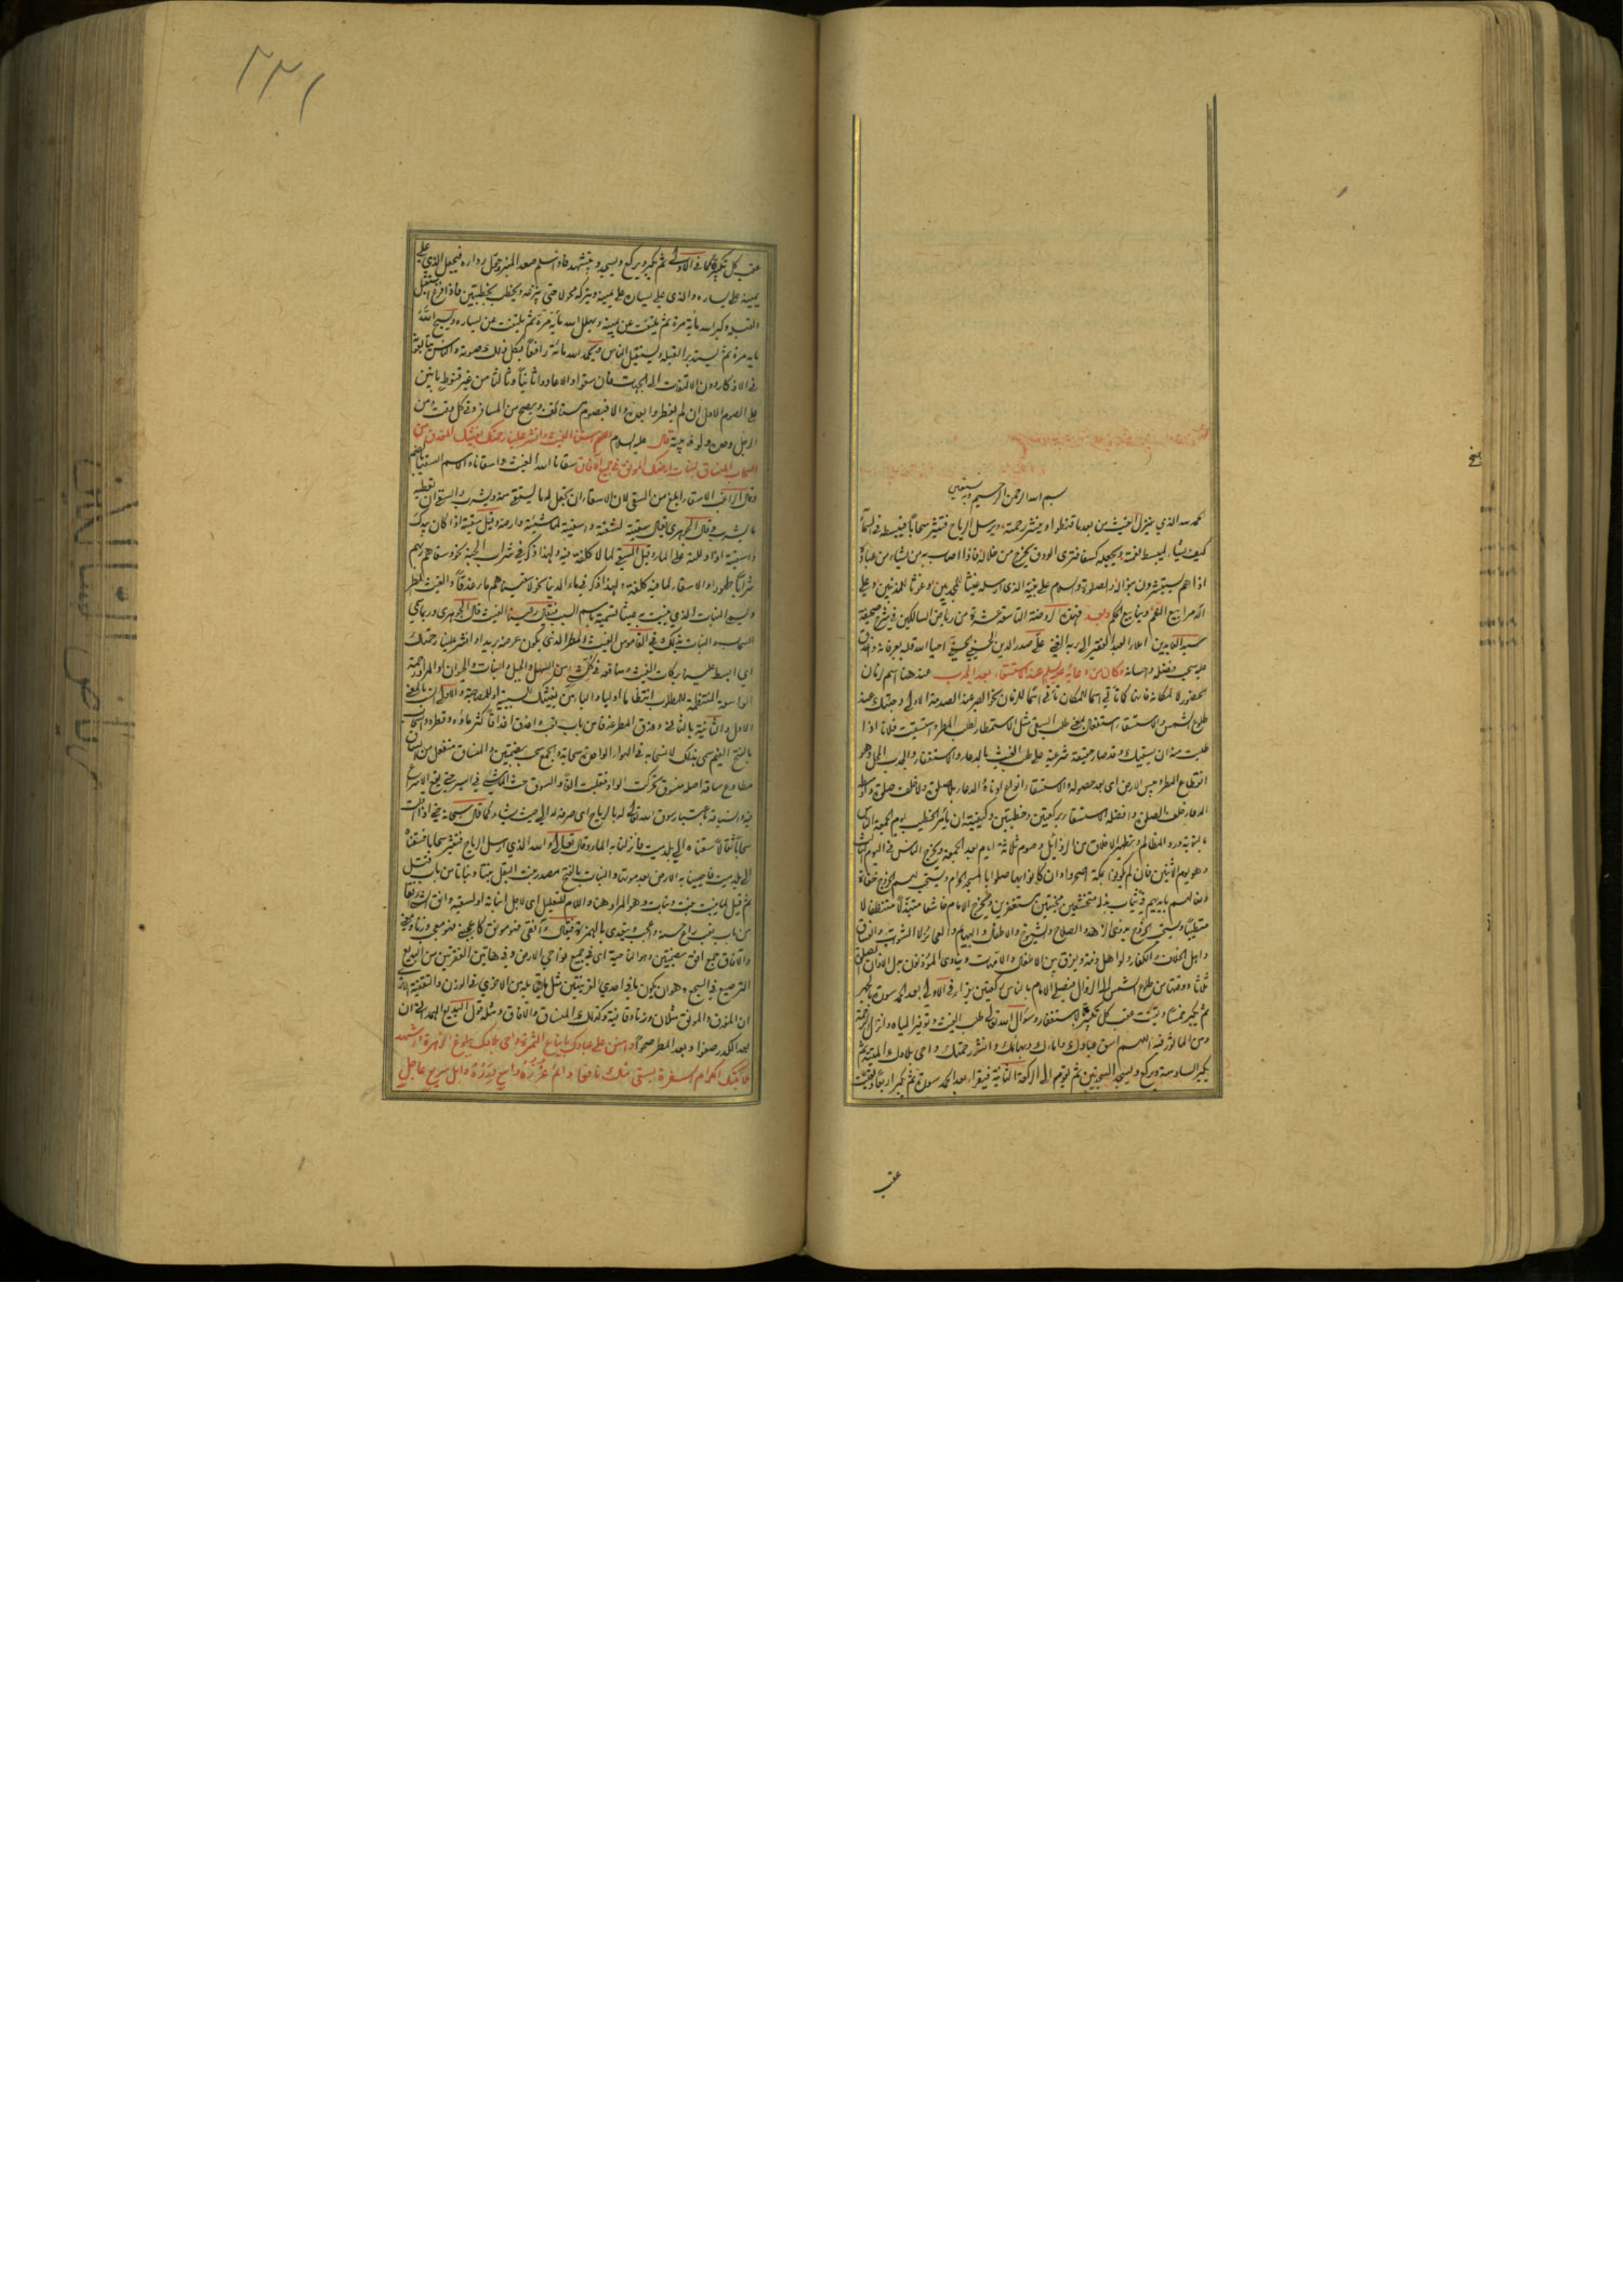 بسم الله الرحمن الرحيم وبه نستعين
الحمد لله الذي ينزل الغيث من بعد ما قنطوا وينشر رحمته ويرسل الرياح فتثير سحابا فيبسطه في السماء
كيف يشاء ليبسط نعمته ويجعله كسفا فترى الودق يخرج من خلاله فاذا اصاب به من يشاء من عباده
اذا هم يستبشرون بنواله والصلوة والسلام على نبيه الذي ارسله غيثا للمجدبين وغوثا للمذنبين وعلى
اله مرابيع النعم وينابيع الحكم وبعد فهذه الروضة التاسعة عشرة من رياض السالكين في شرح صحيفة
سيد العابدين املاء العبد الفقير الى ربه الغني علي صدر الدين الحسيني الحسني احيا الله قلبه بعرفانه
عليه بفضله واحسانه وكان من دعائه عليه السلام عند الاستسقاء بعد الجدب عند هنا اسم لزمان
الحضور لا لمكانه فانها كما تأتي اسما للمكان تأتي اسما للزمان نحو الصبر عند الصدمة الاولى وجئتك عند
طلوع الشمس والاستسقاء استفعال بمعنى طلب السقي مثل الاستمطار لطلب المطر واستسقيت فلانا اذا
طلبت منه ان يسقيك وقد صار حقيقة شرعية على طلب الغيث بالدعاء والاستغفار والجدب المحل وهو
انقطاع المطر ويبس الارض اي بعد حصوله والاستسقاء انواع ادناه الدعاء بلا صلوة ولا خلف صلوة واوسطه
الدعاء خلف الصلوة وافضله الاستسقاء بركعتين وخطبتين وكيفيته ان يأمر الخطيب يوم الجمعة الناس
بالتوبة ورد المظالم وتطهير الاخلاق من الرذائل وصوم ثلاثة ايام بعد الجمعة ويخرج الناس في اليوم الثالث
وهو يوم الاثنين فان لم يكونوا بمكة اصحروا وان كانوا بها صلوا بالمسجد الحرام ويستحب لهم الخروج حفاة
ونعالهم بايديهم في ثياب بذلة متخشعين مخبتين مستغفرين ويخرج الامام خاشعا متبذلا متنظفا لا
متطيبا ويستحب خروج ذوي الزهد والصلاح والشيوخ والاطفال والبهائم والعجائز لا الشواب والفساق
واهل الخلاف والكفار ولو اهل ذمة ويفرق بين الاطفال والامهات وينادي المؤذنون بدل الاذان الصلوة
ثلاثا ووقتها من طلوع الشمس الى الزوال فيصلي الامام بالناس ركعتين يقرأ في الاولى بعد الحمد سورة بالجهر
ثم يكبر خمسا ويقنت عقب كل تكبيرة بالاستغفار وسؤال الله تعالى طلب الغيث وتوفير المياه وانزال الرحمة
ومن المأثور فيه اللهم اسق عبادك واماءك وبهائمك وانشر رحمتك واحي بلادك الميتة ثم
يكبر السادسة ويركع ويسجد السجدتين ثم يقوم الى الركعة الثانية فيقرأ بعد الحمد سورة ثم يكبر اربعا ويقنت
عقب
٢٣١
عقب كل تكبيرة كما في الاولى ثم يكبر ويركع ويسجد ويتشهد فاذا سلم صعد المنبر وحول رداءه فيجعل الذي على
يمينه على يساره والذي على يساره على يمينه ويتركه محولا حتى ينزعه ويخطب بخطبتين فاذا فرغ استقبل
القبلة وكبر الله مأية مرة ثم يلتفت عن يمينه ويهلل الله مأية مرة ثم يلتفت عن يساره ويسبح الله
مأية مرة ثم يستدبر القبلة ويستقبل الناس ويحمد الله مائة رافعا بكل ذلك صوته والناس يتابعونه
في الاذكار دون الالتفات الى الجهات فان سقوا والا عادوا ثانيا وثالثا من غير قنوط بانين
على الصوم الاول ان لم يفطروا بعده والا فبصوم مستأنف ويصح من المسافر وفي كل وقت ومن
الرجل وحده ولو في بيته قال عليه السلام اللهم اسقنا الغيث وانشر علينا رحمتك بغيثك المغدق من
السحاب المنساق لنبات ارضك المونق في جميع الآفاق سقانا الله الغيث واسقانا والاسم السقيا بالضم
وقال الراغب الاسقاء ابلغ من السقي لان الاسقاء ان يجعل له ما يستقي منه ويشرب والسقي ان تعطيه
ما يشرب وقال الجوهري يقال سقيته لشفته واسقيته لماشيته وارضه وقيل سقيته اذا كان بيدك
واسقيته اذا دللته على الماء وقيل السقي لما لا كلفة فيه ولهذا ذكر في شراب الجنة نحو وسقاهم ربهم
شرابا طهورا والاسقاء لما فيه كلفة ولهذا ذكر في ماء الدنيا نحو لاسقيناهم ماء غدقا والغيث المطر
ويسمى النبات الذي ينبت به غيثا تسمية باسم السبب فيقال رعينا الغيث قال الجوهري وربما سمي
السحاب والنبات بذلك وفي القاموس الغيث المطر الذي يكون عرضه بريدا وانشر علينا رحمتك
اي ابسط علينا بركات الغيث ومنافعه في كل شيء من السهل والجبل والنبات والحيوان او المراد رحمته
الواسعة المنتظمة للمطلوب انتظاما اوليا والباء من بغيثك للسببية او للمصاحبة والاولى انسب بالمعنى
الاول والثانية بالثاني وغدق المطر غدقا من باب تعب واغدق اغداقا كثر ماؤه وقطره والسحاب
بالفتح الغيم سمي بذلك لانسحابه في الهواء الواحدة سحابة والجمع سحب بضمتين والمنساق منفعل من انساق
مطاوع ساقه اصله منسوق تحركت الواو فقلبت الفا والسوق حث الماشي في السير حتى يقع الاسراع
فيه وانسياقه باعتبار سوق الله تعالى له بالرياح اي صرفه له الى حيث يشاء كما قال سبحانه حتى اذا اقلت
سحابا ثقالا سقناه الى بلد ميت فانزلنا به الماء وقال تعالى والله الذي ارسل الرياح فتثير سحابا فسقناه
الى بلد ميت فاحيينا به الارض بعد موتها والنبات بالفتح مصدر نبت البقل نبتا ونباتا من باب قتل
ثم قيل لما ينبت نبت ونبات وهو المراد هنا واللام للتعليل اي لاجل انباته او لسقيه وانق الشيء انقا
من باب تعب راع حسنه واعجب ويتعدى بالهمزة فيقال آنقني فهو مونق كاعجبني فهو معجب وزنا ومعنى
والآفاق جمع افق بضمتين وهو الناحية اي في جميع نواحي الارض وفي هاتين الفقرتين من البديع
الترصيع في السجع وهو ان يكون ما في احدى القرينتين مثل ما يقابله من الاخرى في الوزن والتقفية الا
ان المغدق والمونق مثلان وزنا وقافية وكذلك المنساق والآفاق ومثله قول البديع الهمداني ان
بعد الكدر صفوا وبعد المطر صحوا وامنن على عبادك بايناع الثمرة واحي بلادك ببلوغ الزهرة واشهد
ملائكتك الكرام السفرة بسقي منك نافع دائم غزره واسع درره وابل سريع عاجل